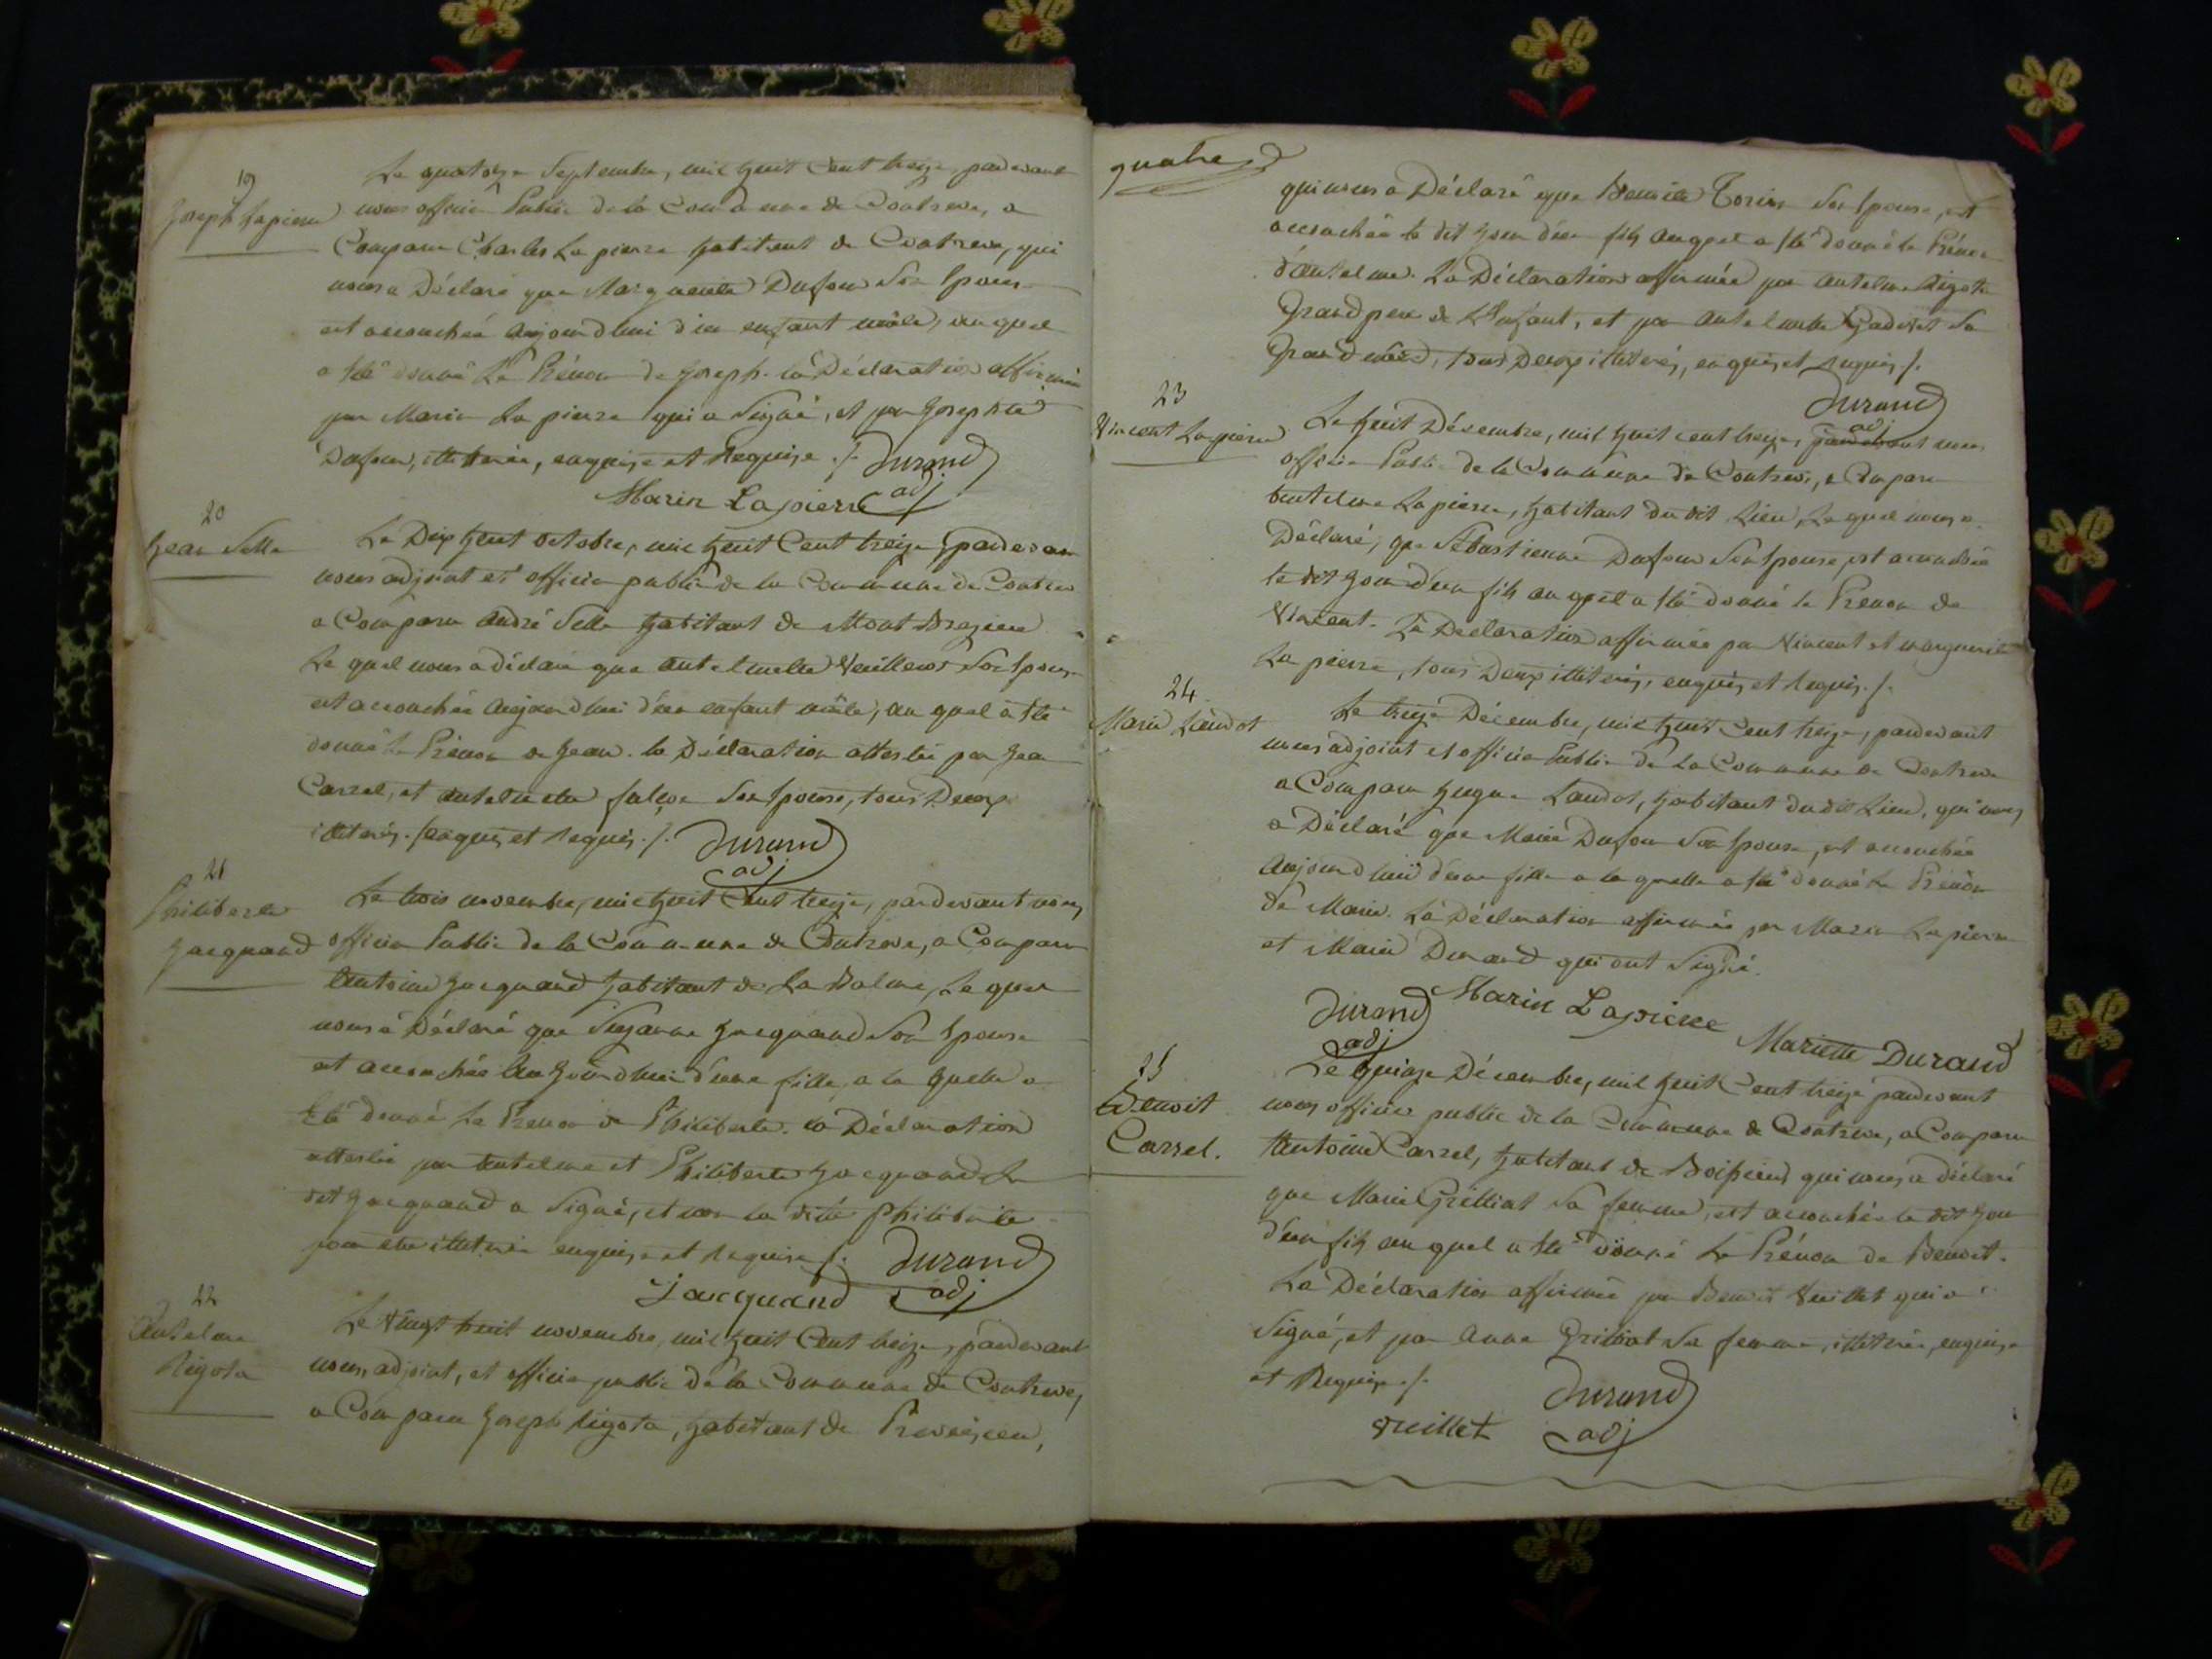 19
Joseph Lapierre
Le quatorze Septembre, mil huit Cent treize, pardevant
nous officier Public de la Commune de Contrevoz, a
Comparu Charles La pierre habitant de Contrevoz, qui
nous a Déclaré que Marguerite Dufour Son Epouse
est accouchée Aujourdhui d'un enfant mâle, au quel
a été donné Le Prénom de Joseph. la Déclaration affirmée
par Marin La pierre qui a Signé, et par Josephte
Dufour, illittérée, enquise et Requise ./. Durand
adj
Marin Lapierre
20
Jean Selle
Le Dix huit octobre, mil huit Cent treize, pardevant
nous adjoint et officier public de la Commune de Contrevoz
a Comparu André Selle habitant de Mont Brezieu
Le quel nous a déclaré que Antelmette Veuillerot Son Epouse
est accouchée Aujourdhui d'un enfant mâle, au quel a été
donné Le Prénom de Jean. la Déclaration attestée par Jean
Carrel, et Son Epouse, tous Deux
illitérés. enquis et Requis ./. Durand
adj
21
Philiberte
Jacquand
Le trois novembre, mil huit Cent treize, pardevant nous
officier Public de la Commune de Contrevoz, a Comparu
Antoine Jacquand habitant de La Balme, Le quel
nous à Déclaré que Suzanne Jacquand Son Epouse
est accouchée Aujourdhui d'une fille, a la quelle a
Eté donné Le Prénom de Philiberte. la Déclaration
attestée par Antelme et Philiberte Jacquand Le
dit Jacquand a Signé, et non la ditte Philiberte
pour etre illitérée enquise et Requise ./. Durand
Jacquand adj
22
Antelme
Rigota
Le Vingt huit novembre, mil huit Cent treize, pardevant
nous, adjoint, et officier public de la Commune de Contrevoz,
a Comparu Joseph Rigota, habitant de Preveyzieu,
quatre
qui nous a Déclaré que Benoite Torin Son Epouse, est
accouchée le dit Jour d'un fils auquel a été donné le Prénom
d'Antelme. La Déclaration affirmée par Antelme Rigota
Grand pere de L'Enfant, et par Antelmette Gadolet Sa
Grand mère, tous Deux illitérés, enquis et Requis ./.
Durand
adj
23
Vincent Lapierre
Le huit Décembre, mil huit cent treize, pardevant nous
officier Public de la Commune de Contrevoz, a Comparu
Antelme Lapierre, habitant du dit Lieu, Le quel nous a
Déclaré, que Sébastienne Dufour Son Epouse, est accouchée
le dit Jour d'un fils au quel a été donné le Prénom de
Vincent. La Déclaration affirmée par Vincent et marguerite
La pierre, tous Deux illitérés, enquis et Requis ./.
24
Marie Landot
Le treize Décembre, mil huit Cent treize, pardevant
nous adjoint et officier Public de La Commune de Contrevoz
a Comparu hugue Landot, habitant du dit Lieu, qui nous
a Déclaré que Marie Dufour Son Epouse, est accouchée
Aujourdhui d'une fille a la quelle a été donné Le Prénom
de Marie. La Déclaration affirmée par Marin Lapierre
et Marie Durand qui ont Signé.
Durand Marin Lapierre
adj Mariette Durand
25
Benoit
Carrel.
Le quinze Décembre, mil huit Cent treize pardevant
nous officier public de la Commune de Contrevoz, a Comparu
Antoine Carrel, habitant de Boissieu, qui nous a déclaré
que Marie Grilliat Sa femme, est accouchée le dit Jour
d'un fils au quel a été donné Le Prénom de Benoit.
La Déclaration affirmée par Benoit Vuillet qui a
Signé, et par Anne Grilliat Sa femme, illitérée, enquise
et Requise ./.
Durand
vuillet adj